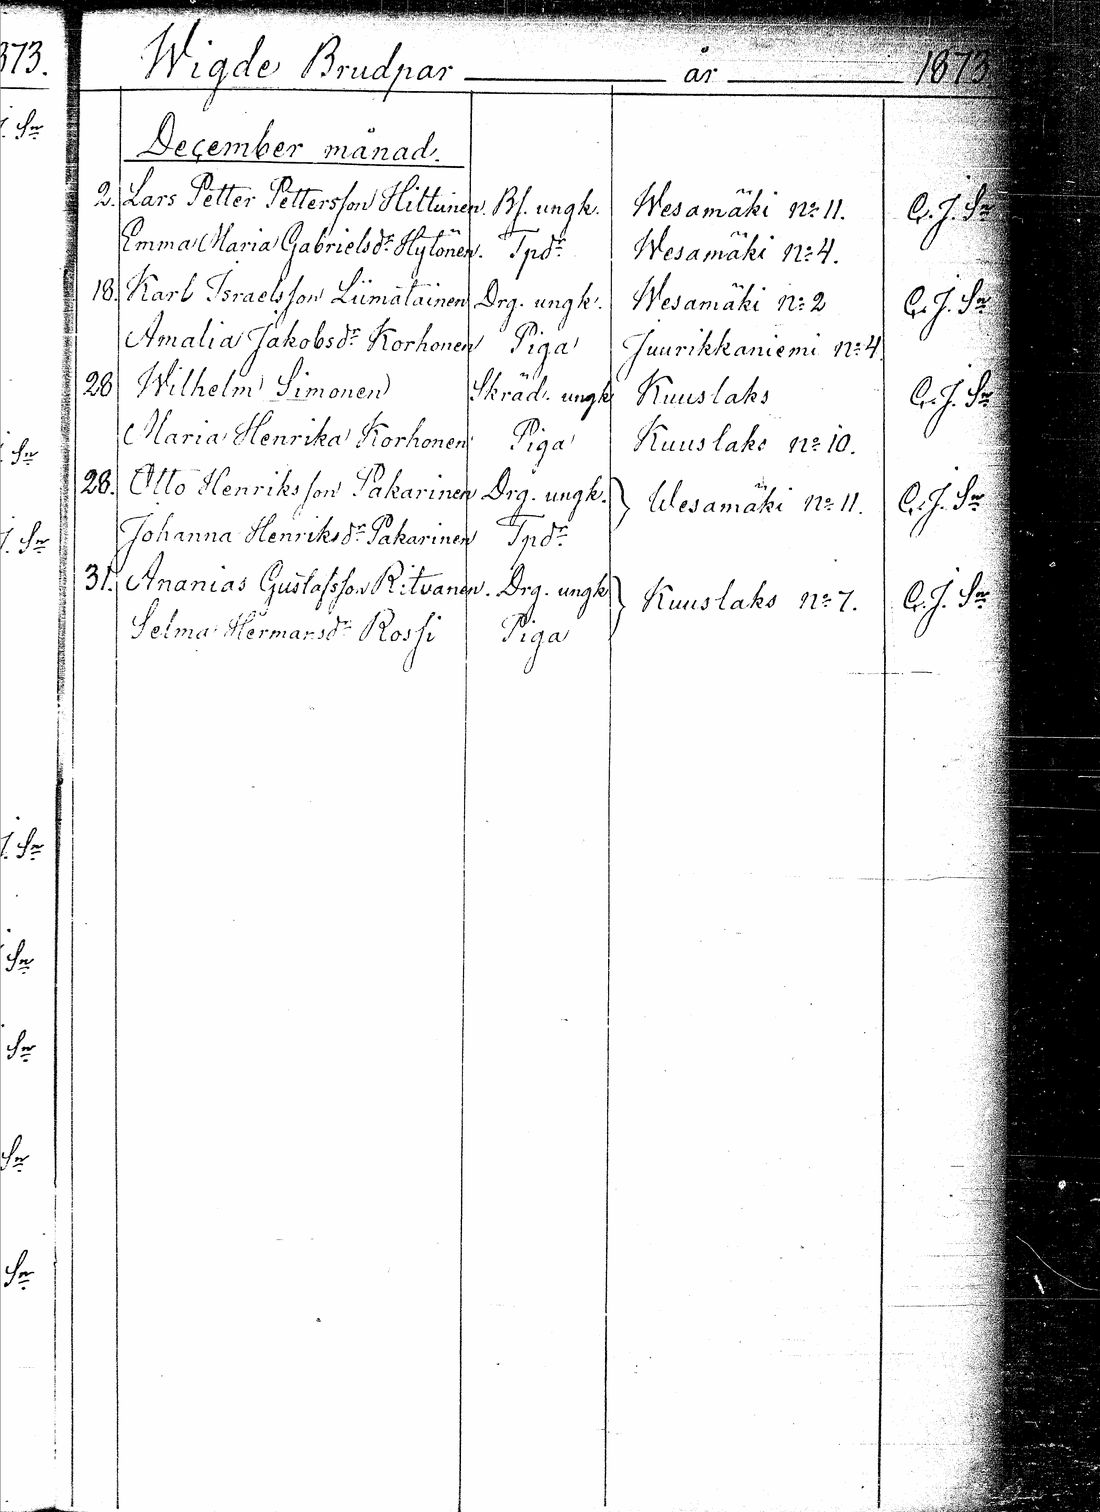 Wigde Brudpar år 1873
December månad.
2. Lars Petter Pettersson Hiltunen. Bf. ungk. Wesamäki No 11. C. J. Sn
Emma Maria Gabrielsdr Hytönen. Tpdr Wesamäki No 4.
18. Karl Israelsson Liimatainen Drg. ungk. Wesamäki No 2 C. J. Sn
Amalia Jakobsdr Korhonen Piga Juurikkaniemi No 4.
28 Wilhelm Simonen Skräd. ungk Kuuslaks C. J. Sn
Maria Henrika Korhonen Piga Kuuslaks No 10.
28. Otto Henriksson Pakarinen Drg. ungk. } Wesamäki No 11. C. J. Sn
Johanna Henriksdr Pakarinen Tpdr
31. Ananias Gustafsson Ritvanen. Drg. ungk } Kuuslaks No 7. C. J. Sn
Selma Hermansdr Rossi Piga
873.
J. Sn
Sn
J. Sn
J. Sn
Sn
Sn
Sn
Sn